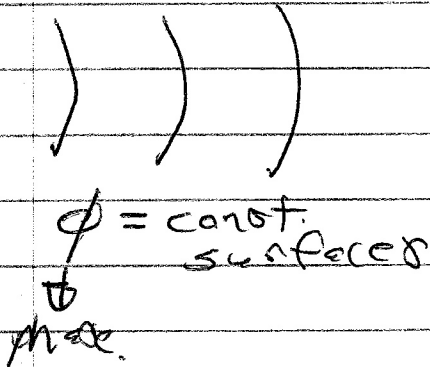 φ = const.
surfaces
↓
phase.